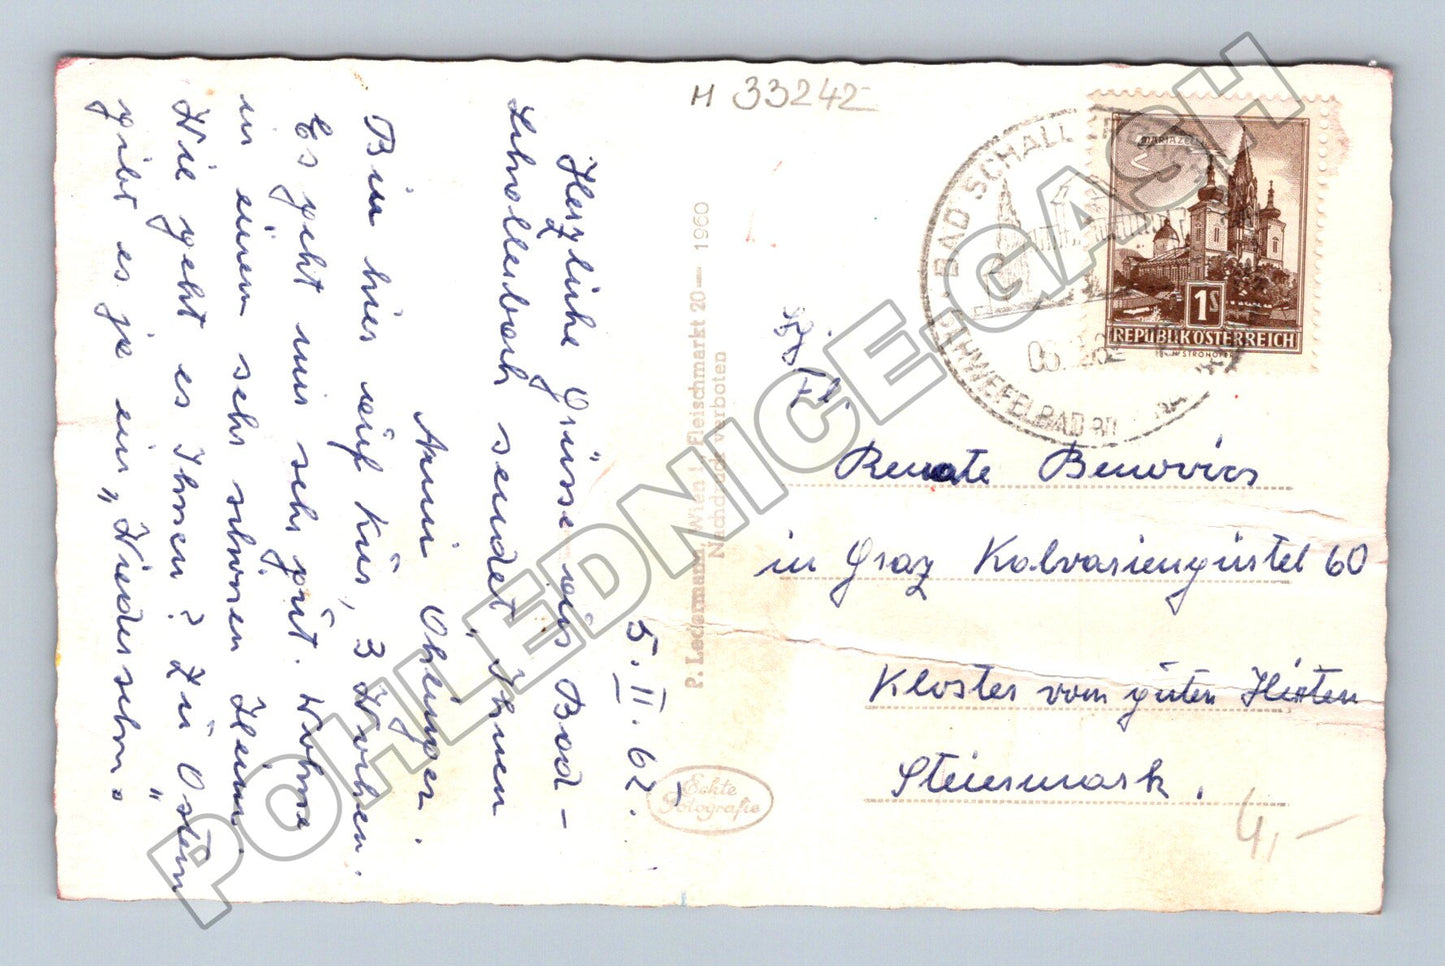 M 33242
Herzliche Grüsse aus Bad-
Schallerbach sendet Ihnen
Anni Öhlinger.
Bin hier auf Kur, 3 Wochen.
Es geht mir sehr gut. Wohne
in einem sehr schönen Heim
Wie geht es Ihnen? Zu Ostern
gibt es ja ein „Wiedersehn."
5. II. 62.
P. Ledermann, Wien I., Fleischmarkt 20 — 1960
Nachdruck verboten
Echte
Fotografie
BAD SCHALLERBACH
SCHWEFELBAD
MARIAZELL
1S
REPUBLIK ÖSTERREICH
Frl.
Renate Benovics
in Graz Kalvariengürtel 60
Kloster vom guten Hirten
Steiermark.
4,-
POHLEDNICE-GASH